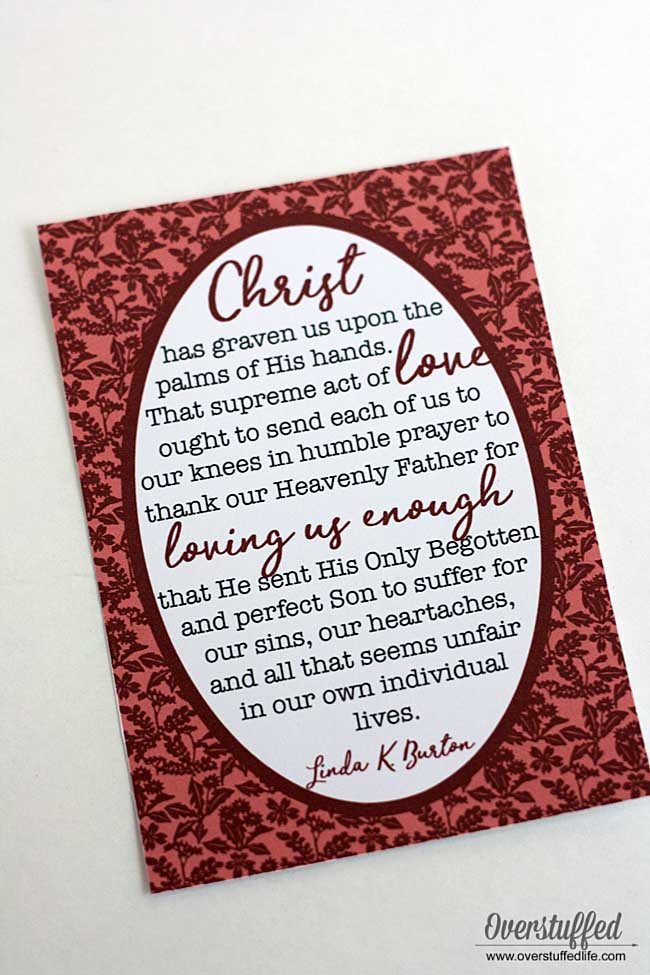 Christ
has graven us upon the
palms of His hands.
That supreme act of love
ought to send each of us to
our knees in humble prayer to
thank our Heavenly Father for
loving us enough
that He sent His Only Begotten
and perfect Son to suffer for
our sins, our heartaches,
and all that seems unfair
in our own individual
lives.
Linda K Burton
Overstuffed
www.overstuffedlife.com